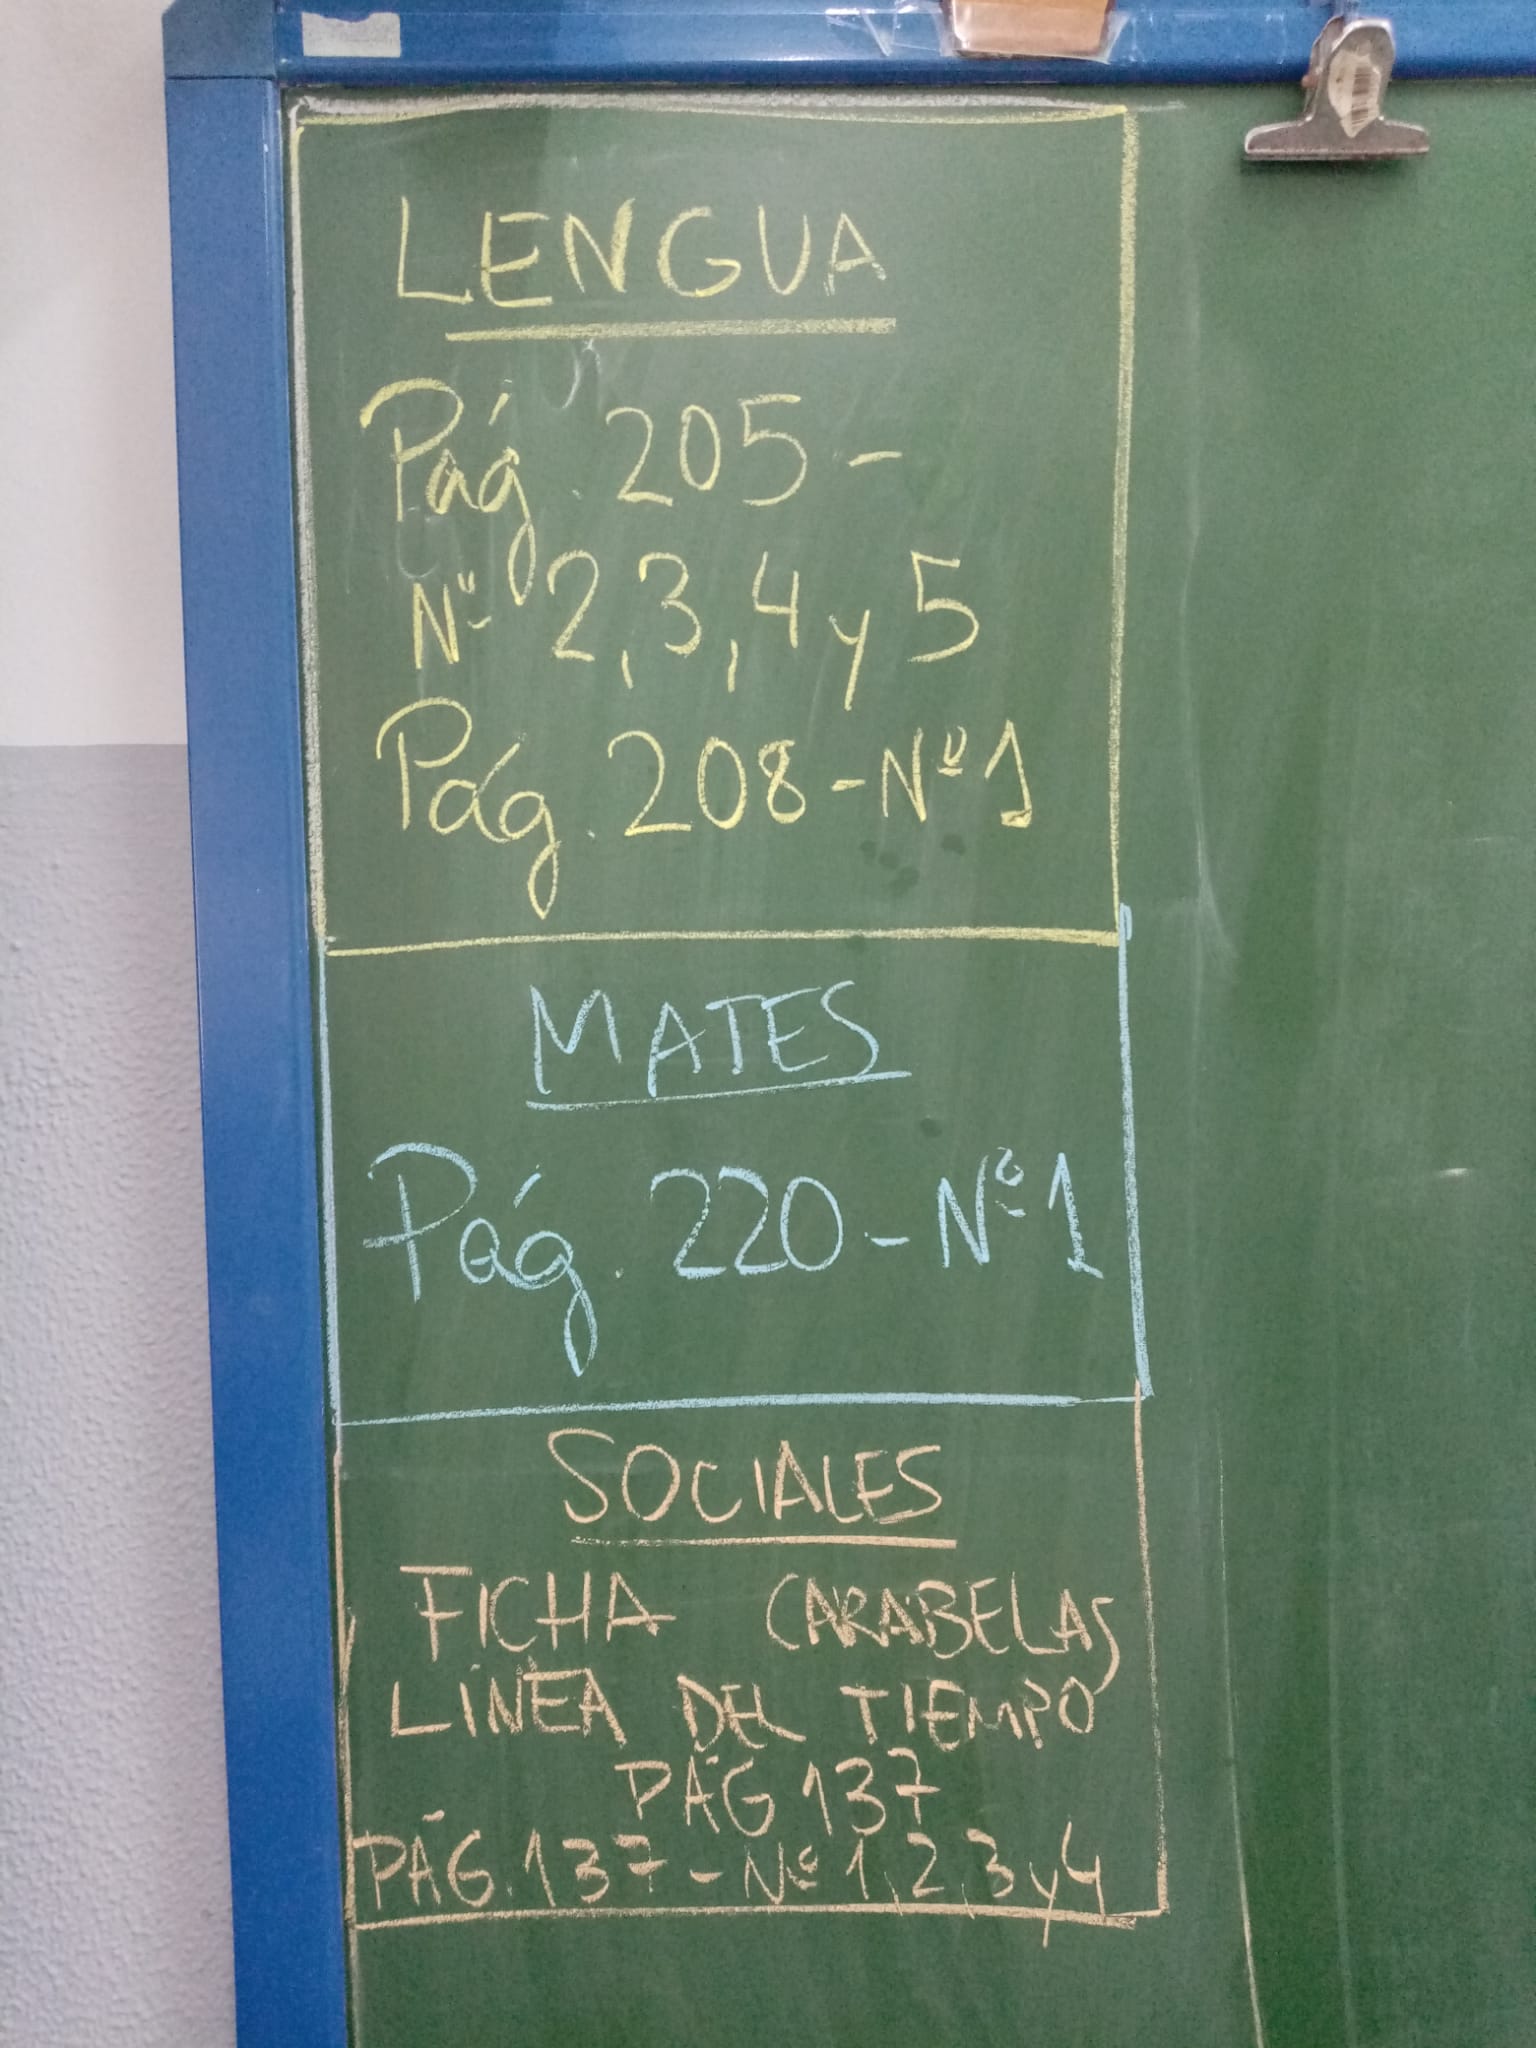 LENGUA
Pág. 205 -
Nº 2, 3, 4 y 5
Pág. 208 - Nº 1
MATES
Pág. 220 - Nº 1
SOCIALES
FICHA CARABELAS
LÍNEA DEL TIEMPO
PÁG 137
PÁG. 137 - Nº 1, 2, 3 y 4